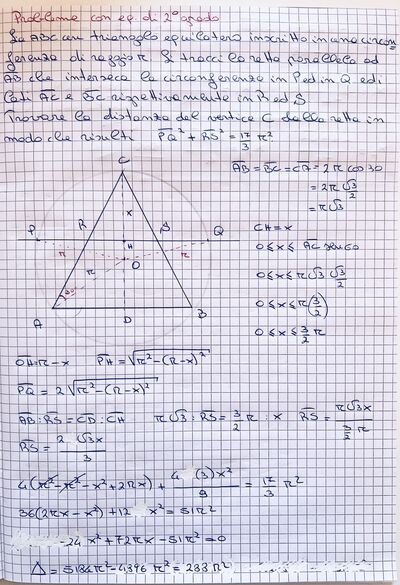 Problema con eq. di 2° grado
Sia ABC un triangolo equilatero inscritto in una circon
ferenza di raggio r. Si tracci la retta parallela ad
AB che interseca la circonferenza in P ed in Q ed i
lati AC e BC rispettivamente in R ed S
Trovare la distanza del vertice C dalla retta in
modo che risulti PQ² + RS² = 17/3 r².
AB = BC = CA = 2r cos 30
= 2r √3/2
= r√3
C
x
P R H S Q
r r
O
r
30°
A D B
CH = x
0 ≤ x ≤ AC sen 60
0 ≤ x ≤ r√3 √3/2
0 ≤ x ≤ r (3/2)
0 ≤ x ≤ 3/2 r
OH = r - x PH = √(r² - (r - x)²)
PQ = 2√(r² - (r - x)²)
AB : RS = CD : CH r√3 : RS = 3/2 r : x RS = r√3x / (3/2 r)
RS = 2 √3x / 3
4(r² - r² - x² + 2rx) + 4 (3)x² / 9 = 17/3 r²
36(2rx - x²) + 12 x² = 51r²
-24x² + 72rx - 51r² = 0
Δ = 5184r² - 4896r² = 288r²